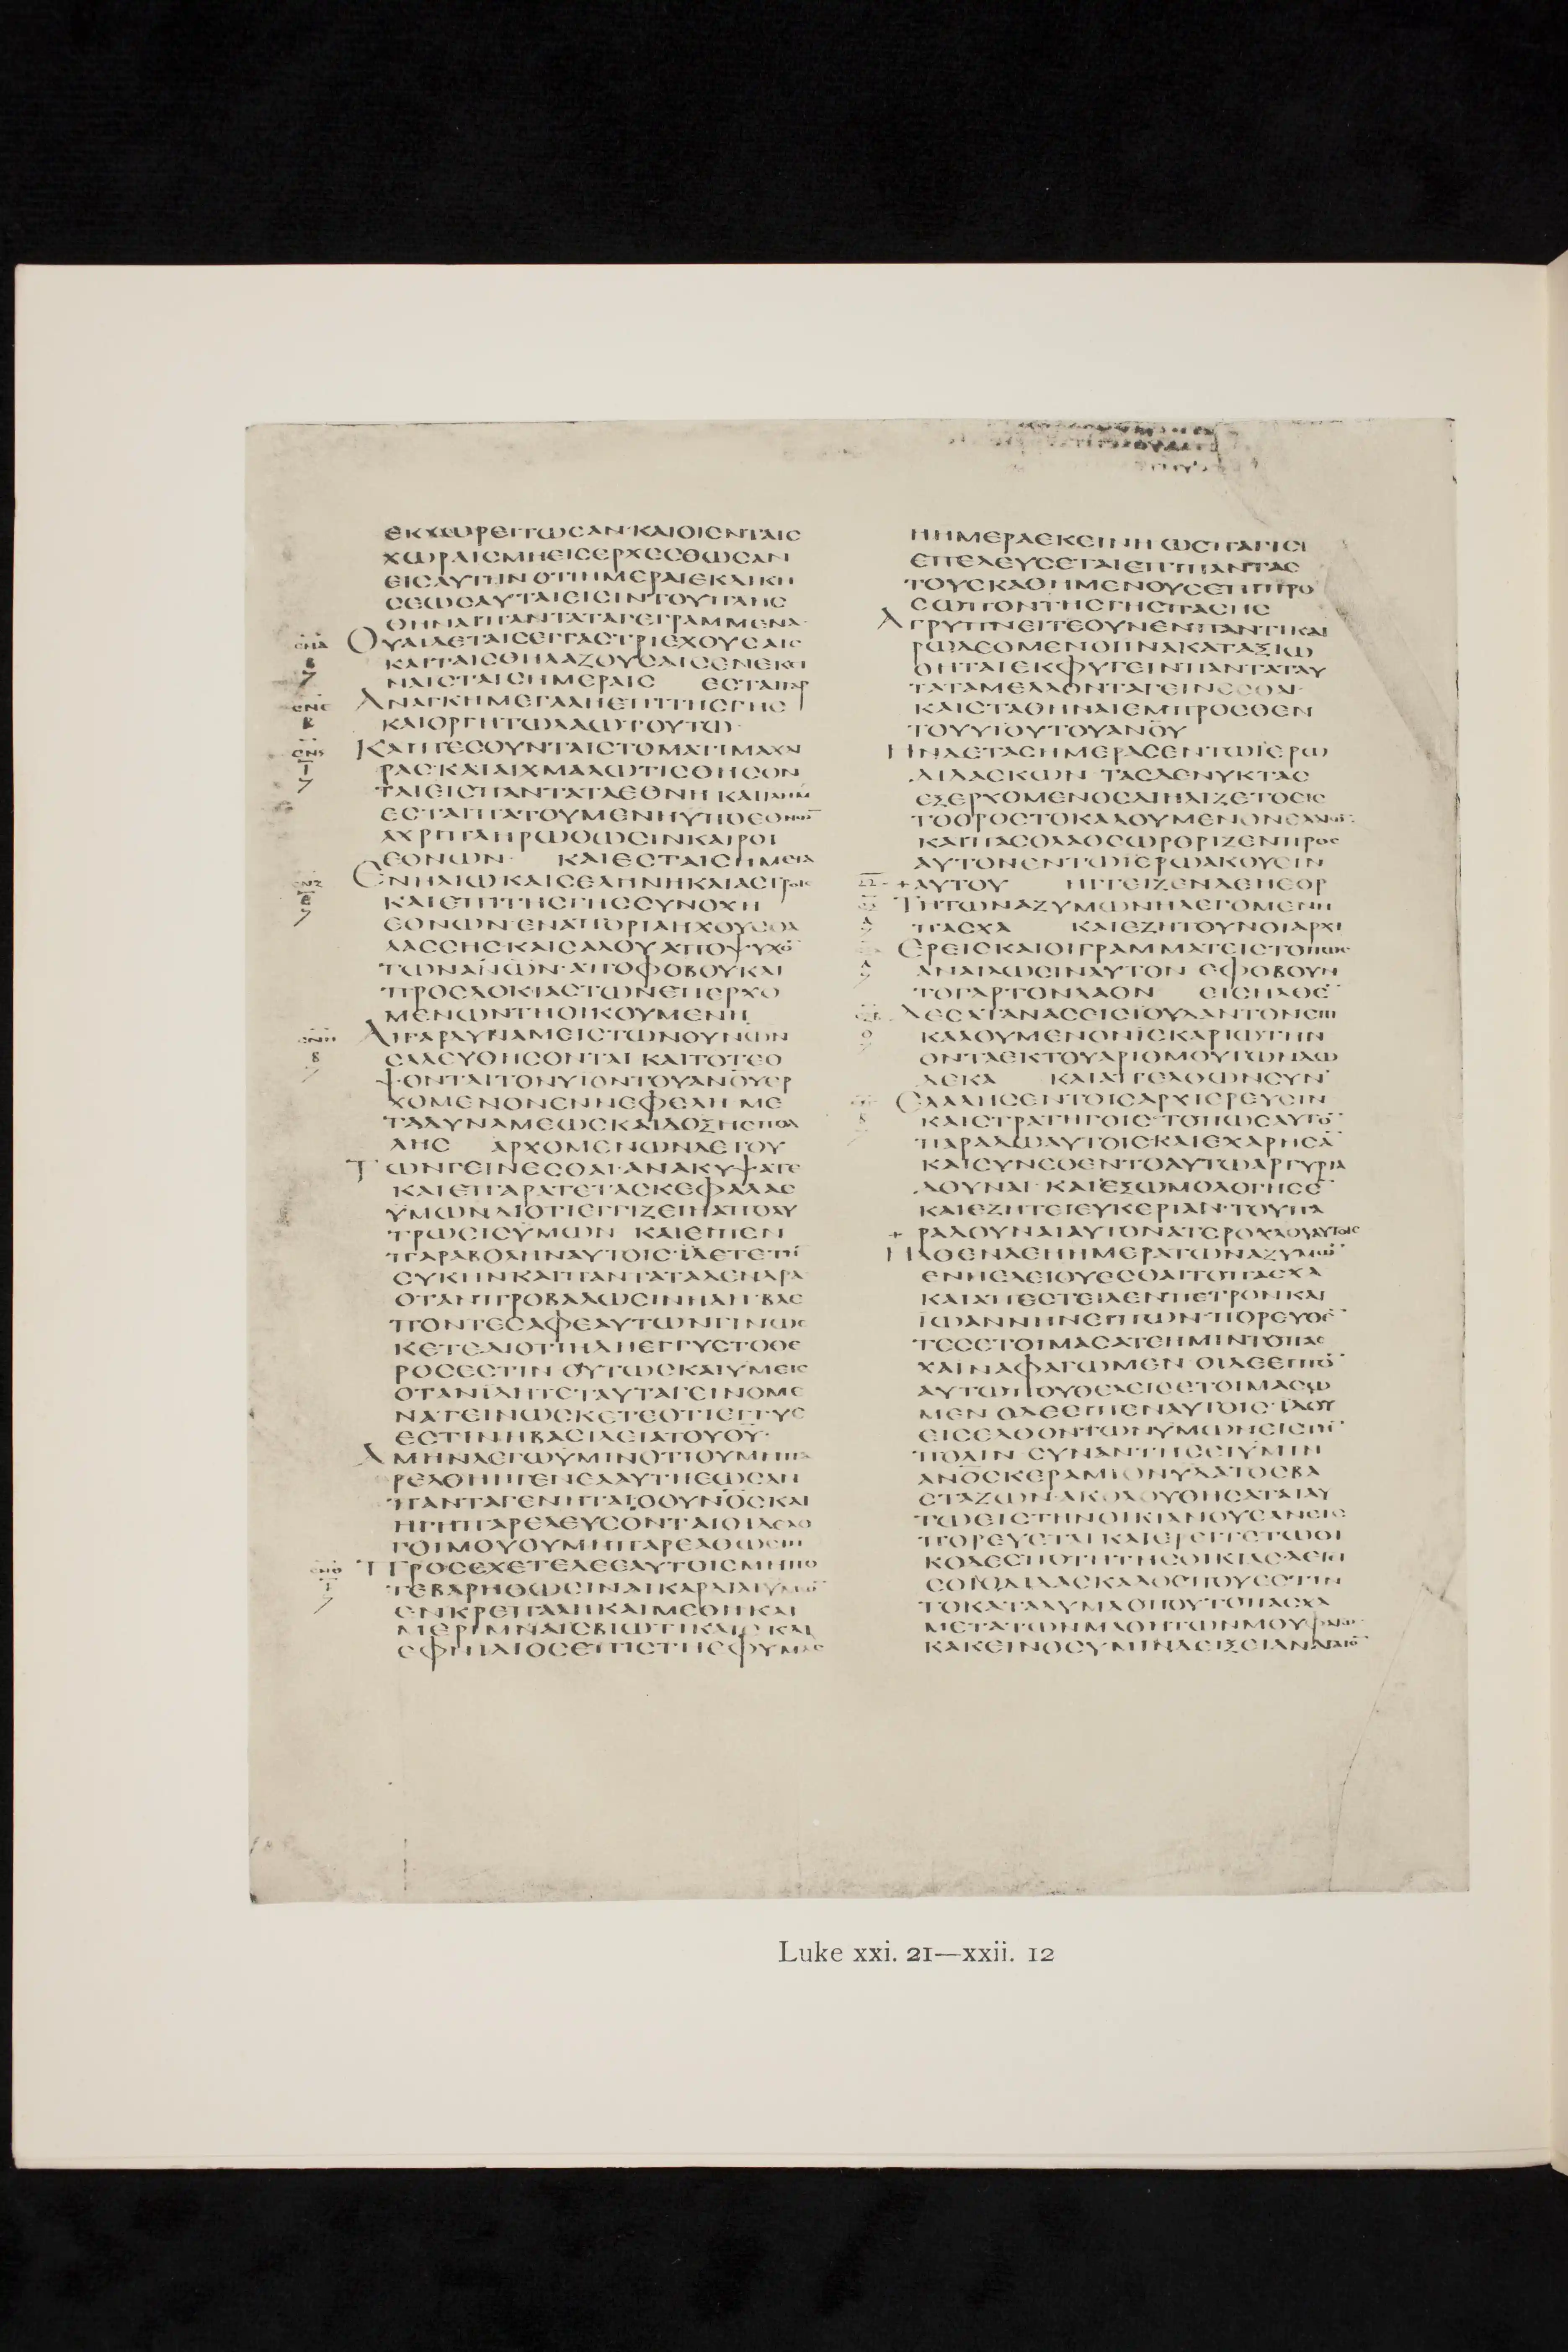 ΕΚΧΩΡΕΙΤΩΣΑΝ·ΚΑΙΟΙΕΝΤΑΙΣ
ΧΩΡΑΙΣΜΗΕΙΣΕΡΧΕΣΘΩΣΑΝ
ΕΙΣΑΥΤΗΝΟΤΙΗΜΕΡΑΙΕΚΔΙΚΗ
ΣΕΩΣΑΥΤΑΙΕΙΣΙΝΤΟΥΠΛΗΣ
ΘΗΝΑΙΠΑΝΤΑΤΑΓΕΓΡΑΜΜΕΝΑ·
ΟΥΑΙΔΕΤΑΙΣΕΓΓΑΣΤΡΙΕΧΟΥΣΑΙΣ
ΚΑΙΤΑΙΣΘΗΛΑΖΟΥΣΑΙΣΕΝΕΚΕΙ
ΝΑΙΣΤΑΙΣΗΜΕΡΑΙΣ ΕΣΤΑΙΓΑΡ
ΑΝΑΓΚΗΜΕΓΑΛΗΕΠΙΤΗΣΓΗΣ
ΚΑΙΟΡΓΗΤΩΛΑΩΤΟΥΤΩ·
ΚΑΙΠΕΣΟΥΝΤΑΙΣΤΟΜΑΤΙΜΑΧΑΙ
ΡΑΣ·ΚΑΙΑΙΧΜΑΛΩΤΙΣΘΗΣΟΝ
ΤΑΙΕΙΣΠΑΝΤΑΤΑΕΘΝΗ ΚΑΙΙΛΗΜ
ΕΣΤΑΙΠΑΤΟΥΜΕΝΗΥΠΟΕΘΝΩΝ
ΑΧΡΙΠΛΗΡΩΘΩΣΙΝΚΑΙΡΟΙ
ΕΘΝΩΝ· ΚΑΙΕΣΤΑΙΣΗΜΕΙΑ
ΕΝΗΛΙΩΚΑΙΣΕΛΗΝΗΚΑΙΑΣΤΡΟΙΣ
ΚΑΙΕΠΙΤΗΣΓΗΣΣΥΝΟΧΗ
ΕΘΝΩΝ·ΕΝΑΠΟΡΙΑΗΧΟΥΣΘΑ
ΛΑΣΣΗΣ·ΚΑΙΣΑΛΟΥΑΠΟΨΥΧΟ̅
ΤΩΝΑΝΩΝ·ΑΠΟΦΟΒΟΥΚΑΙ
ΠΡΟΣΔΟΚΙΑΣΤΩΝΕΠΕΡΧΟ
ΜΕΝΩΝΤΗΟΙΚΟΥΜΕΝΗ
ΑΙΓΑΡΔΥΝΑΜΕΙΣΤΩΝΟΥΝΩΝ
ΣΑΛΕΥΘΗΣΟΝΤΑΙ ΚΑΙΤΟΤΕΟ
ΨΟΝΤΑΙΤΟΝΥΙΟΝΤΟΥΑΝΟΥΕΡ
ΧΟΜΕΝΟΝΕΝΝΕΦΕΛΗ ΜΕ
ΤΑΔΥΝΑΜΕΩΣΚΑΙΔΟΞΗΣΠΟΛ
ΛΗΣ ΑΡΧΟΜΕΝΩΝΔΕΤΟΥ
ΤΩΝΓΕΙΝΕΣΘΑΙ·ΑΝΑΚΥΨΑΤΕ
ΚΑΙΕΠΑΡΑΤΕΤΑΣΚΕΦΑΛΑΣ
ΥΜΩΝΔΙΟΤΙΕΓΓΙΖΕΙΗΑΠΟΛΥ
ΤΡΩΣΙΣΥΜΩΝ ΚΑΙΕΙΠΕΝ
ΠΑΡΑΒΟΛΗΝΑΥΤΟΙΣ·ΙΔΕΤΕΤΗ̅
ΣΥΚΗΝΚΑΙΠΑΝΤΑΤΑΔΕΝΔΡΑ
ΟΤΑΝΠΡΟΒΑΛΩΣΙΝΗΔΗ·ΒΛΕ
ΠΟΝΤΕΣΑΦΕΑΥΤΩΝΓΙΝΩΣ
ΚΕΤΕ·ΔΙΟΤΙΗΔΗΕΓΓΥΣΤΟΘΕ
ΡΟΣΕΣΤΙΝ ΟΥΤΩΣΚΑΙΥΜΕΙΣ
ΟΤΑΝΙΔΗΤΕΤΑΥΤΑΓΕΙΝΟΜΕ
ΝΑΓΕΙΝΩΣΚΕΤΕΟΤΙΕΓΓΥΣ
ΕΣΤΙΝΗΒΑΣΙΛΕΙΑΤΟΥΘΥ·
ΑΜΗΝΛΕΓΩΥΜΙΝΟΤΙΟΥΜΗΠΑ
ΡΕΛΘΗΗΓΕΝΕΑΑΥΤΗΕΩΣΑΝ
ΠΑΝΤΑΓΕΝΗΤΑΙ·ΟΟΥΝΟΣΚΑΙ
ΗΓΗΠΑΡΕΛΕΥΣΟΝΤΑΙΟΙΔΕΛΟ
ΓΟΙΜΟΥΟΥΜΗΠΑΡΕΛΘΩΣΙΝ
ΠΡΟΣΕΧΕΤΕΔΕΕΑΥΤΟΙΣΜΗΠΟ
ΤΕΒΑΡΗΘΩΣΙΝΑΙΚΑΡΔΙΑΙΥΜΩ̅
ΕΝΚΡΕΠΑΛΗΚΑΙΜΕΘΗΚΑΙ
ΜΕΡΙΜΝΑΙΣΒΙΩΤΙΚΑΙΣ ΚΑΙ
ΕΦΝΙΔΙΟΣΕΠΙΣΤΗΕΦΥΜΑΣ
ΗΗΜΕΡΑΕΚΕΙΝΗ ΩΣΠΑΓΙΣ
ΕΠΕΛΕΥΣΕΤΑΙΕΠΙΠΑΝΤΑΣ
ΤΟΥΣΚΑΘΗΜΕΝΟΥΣΕΠΙΠΡΟ
ΣΩΠΟΝΤΗΣΓΗΣΠΑΣΗΣ
ΑΓΡΥΠΝΕΙΤΕΟΥΝΕΝΠΑΝΤΙΚΑΙ
ΡΩΔΕΟΜΕΝΟΙΙΝΑΚΑΤΑΞΙΩ
ΘΗΤΑΙΕΚΦΥΓΕΙΝΠΑΝΤΑΤΑΥ
ΤΑΤΑΜΕΛΛΟΝΤΑΓΕΙΝΕΣΘΑΙ·
ΚΑΙΣΤΑΘΗΝΑΙΕΜΠΡΟΣΘΕΝ
ΤΟΥΥΙΟΥΤΟΥΑΝΟΥ
ΗΝΔΕΤΑΣΗΜΕΡΑΣΕΝΤΩΙΕΡΩ
ΔΙΔΑΣΚΩΝ ΤΑΣΔΕΝΥΚΤΑΣ
ΕΞΕΡΧΟΜΕΝΟΣΑΙΗΛΙΖΕΤΟΕΙΣ
ΤΟΟΡΟΣΤΟΚΑΛΟΥΜΕΝΟΝΕΛΑΙΩ̅·
ΚΑΙΠΑΣΟΛΑΟΣΩΡΟΡΙΖΕΝΠΡΟΣ
ΑΥΤΟΝΕΝΤΩΙΕΡΩΑΚΟΥΕΙΝ
+ΑΥΤΟΥ ΗΓΓΕΙΖΕΝΔΕΗΕΟΡ
ΤΗΤΩΝΑΖΥΜΩΝΗΛΕΓΟΜΕΝΗ
ΠΑΣΧΑ ΚΑΙΕΖΗΤΟΥΝΟΙΑΡΧΙ
ΕΡΕΙΣΚΑΙΟΙΓΡΑΜΜΑΤΕΙΣΤΟΠΩΣ
ΑΝΑΙΛΩΣΙΝΑΥΤΟΝ ΕΦΟΒΟΥΝ
ΤΟΓΑΡΤΟΝΛΑΟΝ ΕΙΣΗΛΘΕ̅
ΔΕΣΑΤΑΝΑΣΕΙΣΙΟΥΔΑΝΤΟΝΕΠΙ
ΚΑΛΟΥΜΕΝΟΝΙΣΚΑΡΙΩΤΗΝ
ΟΝΤΑΕΚΤΟΥΑΡΙΘΜΟΥΤΩΝΔΩ
ΔΕΚΑ ΚΑΙΑΠΕΛΘΩΝΣΥΝ
ΕΛΑΛΗΣΕΝΤΟΙΣΑΡΧΙΕΡΕΥΣΙΝ
ΚΑΙΣΤΡΑΤΗΓΟΙΣ·ΤΟΠΩΣΑΥΤΟ̅
ΠΑΡΑΔΩΑΥΤΟΙΣΚΑΙΕΧΑΡΗΣΑ̅
ΚΑΙΣΥΝΕΘΕΝΤΟΑΥΤΩΑΡΓΥΡΙΑ
ΔΟΥΝΑΙ·ΚΑΙΕΞΩΜΟΛΟΓΗΣΕ̅
ΚΑΙΕΖΗΤΕΙΕΥΚΕΡΙΑΝ·ΤΟΥΠΑ
+ ΡΑΔΟΥΝΑΙΑΥΤΟΝΑΤΕΡΟΧΛΟΥΑΥΤΟΙΣ
ΗΛΘΕΝΔΕΗΗΜΕΡΑΤΩΝΑΖΥΜΩ̅
ΕΝΗΕΔΕΙΘΥΕΣΘΑΙΤΟΠΑΣΧΑ
ΚΑΙΑΠΕΣΤΕΙΛΕΝΠΕΤΡΟΝΚΑΙ
ΙΩΑΝΝΗΝΕΙΠΩΝ·ΠΟΡΕΥΘΕ̅
ΤΕΣΕΤΟΙΜΑΣΑΤΕΗΜΙΝΤΟΠΑΣ
ΧΑΙΝΑΦΑΓΩΜΕΝ ΟΙΔΕΕΙΠΟ̅
ΑΥΤΩΠΟΥΘΕΛΕΙΣΕΤΟΙΜΑΣΩ
ΜΕΝ ΟΔΕΕΙΠΕΝΑΥΤΟΙΣ·ΙΔΟΥ
ΕΙΣΕΛΘΟΝΤΩΝΥΜΩΝΕΙΣΤΗ̅
ΠΟΛΙΝ ΣΥΝΑΝΤΗΣΕΙΥΜΙΝ
ΑΝΟΣΚΕΡΑΜΙΟΝΥΔΑΤΟΣΒΑ
ΣΤΑΖΩΝ·ΑΚΟΛΟΥΘΗΣΑΤΑΙΑΥ
ΤΩΕΙΣΤΗΝΟΙΚΙΑΝΟΥΕΑΝΕΙΣ
ΠΟΡΕΥΕΤΑΙ ΚΑΙΕΡΕΙΤΕΤΩΟΙ
ΚΟΔΕΣΠΟΤΗΤΗΣΟΙΚΙΑΣ·ΛΕΓΕΙ
ΣΟΙΟΔΙΔΑΣΚΑΛΟΣΠΟΥΕΣΤΙΝ
ΤΟΚΑΤΑΛΥΜΑΟΠΟΥΤΟΠΑΣΧΑ
ΜΕΤΑΤΩΝΜΑΘΗΤΩΝΜΟΥΦΑΓΩ
ΚΑΚΕΙΝΟΣΥΜΙΝΔΕΙΞΕΙΑΝΑΓΑΙΟ̅
Luke xxi. 21—xxii. 12